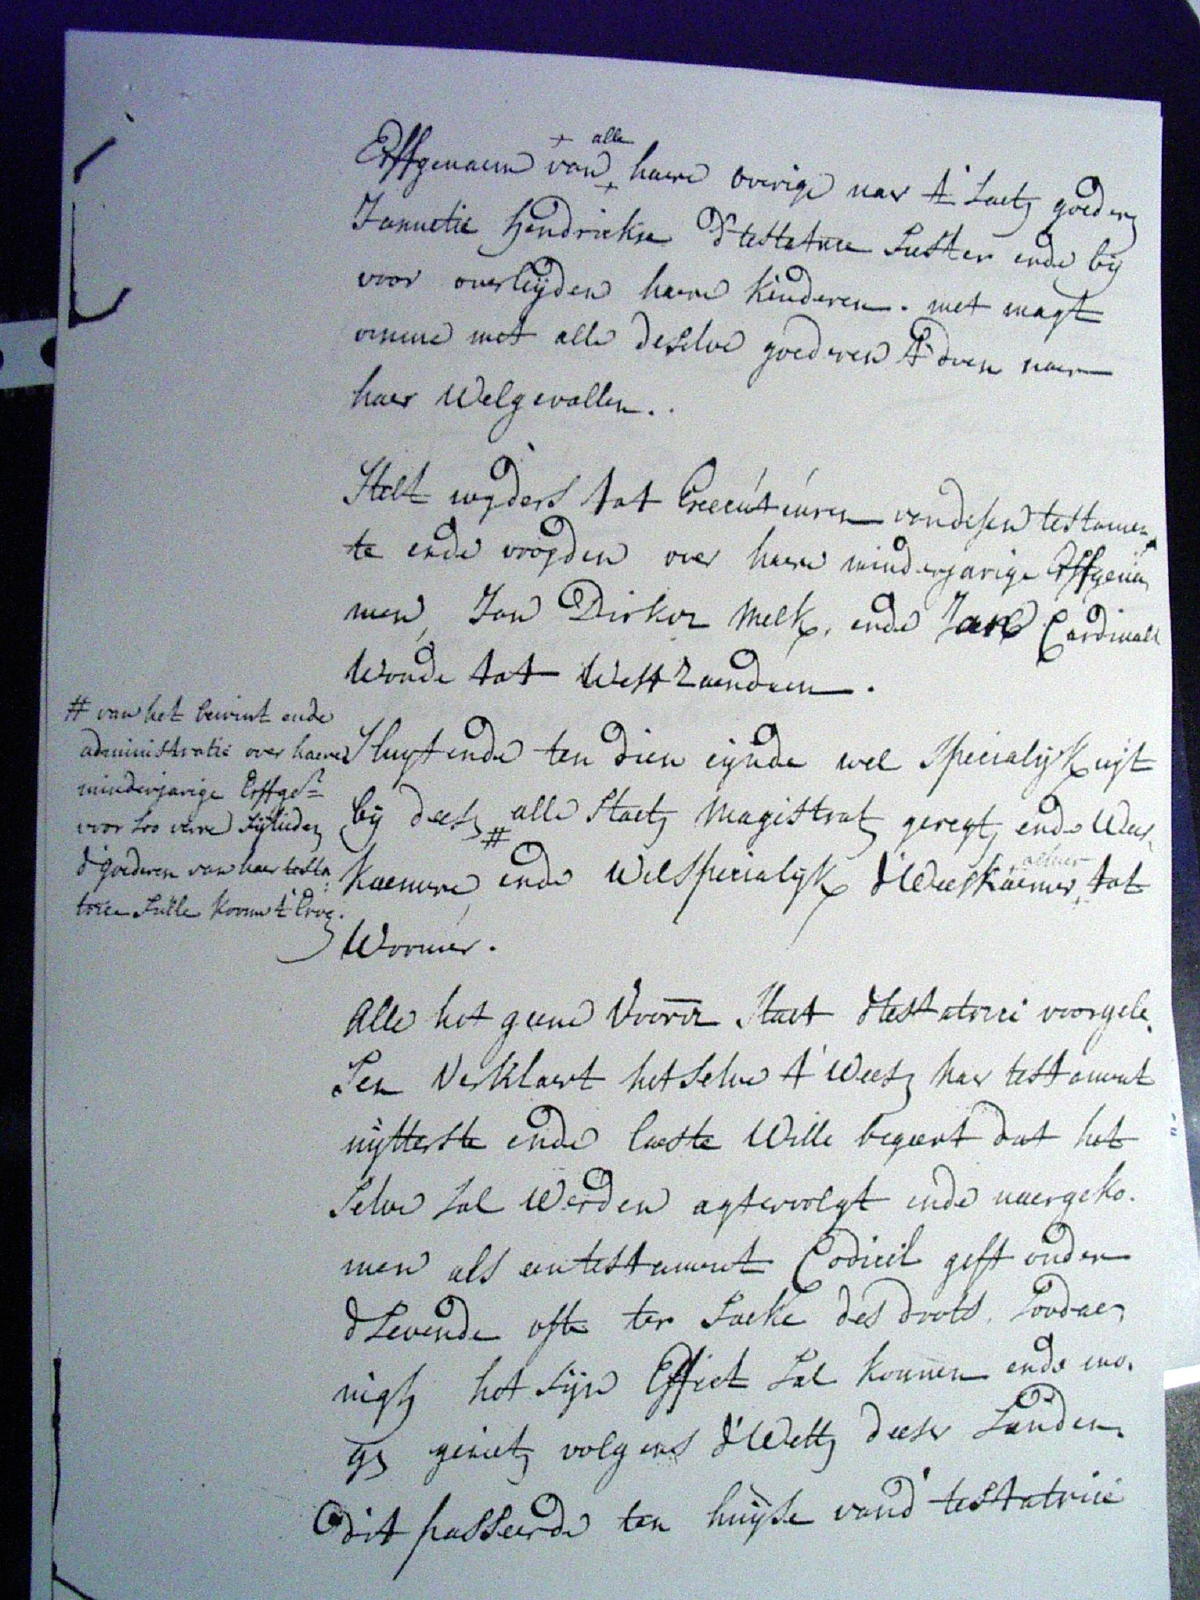 alle
Erffgenaem van haere overige naer t' Laeten goederen
Jannetie Hendrickse d'testatrice Suster ende bij
voor overleijden haere Kinderen. met magt
omme met alle deselve goederen t' doen naer
haer Welgevallen.
Stelt wijders tot Executeuren van desen testamen
te ende voogden over haere minderjarige Erffgena
men, Jan Dirksz Melk, ende Jan Cardinael
Wonde tot West Zaendam.
# van het bewint ende
administratie over haere
minderjarige Erffge.n
voor soo verre Sijlieden
d'goederen van haer testa
trice Sulle koome t' Erve.
Sluijtende ten dien eijnde wel specialijk uijt
bij deese alle Staets Magistraten geregten ende Wees
kaemere # ende wel specialijk d'Weeskaemer tot
Wormer.
Alle het geene Voorsz Staet d'testatrice voorgele
sen Verklaert het selve t' Weesen haer testament
uijtterste ende laeste Wille begeert dat het
selve sal Werden agtervolgt ende naergeko.
men als een testament Codicil gift onder
d'Levende ofte ter Saeke des doots. soodae
nigh het sijn Effect Sal konnen ende mo.
ge genieten volgens d'Wetten deeser Landen.
Dit passeerde ten huijse vand' testatrice